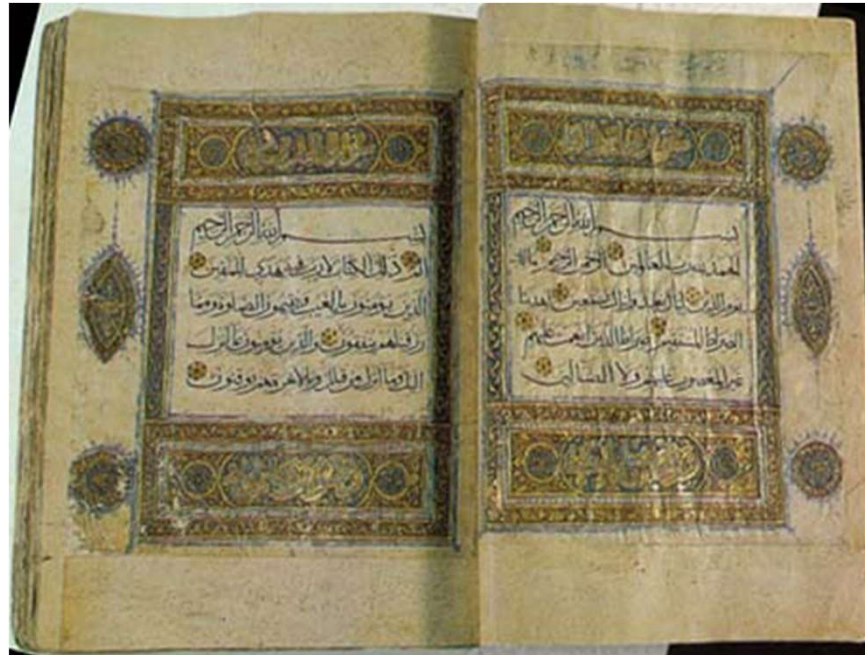 بسم الله الرحمن الرحيم
الحمد لله رب العالمين الرحمن الرحيم مالك
يوم الدين إياك نعبد وإياك نستعين اهدنا
الصراط المستقيم صراط الذين أنعمت عليهم
غير المغضوب عليهم ولا الضالين
بسم الله الرحمن الرحيم
الم ذلك الكتاب لا ريب فيه هدى للمتقين
الذين يؤمنون بالغيب ويقيمون الصلوة ومما
رزقناهم ينفقون والذين يؤمنون بما أنزل
إليك وما أنزل من قبلك وبالآخرة هم يوقنون